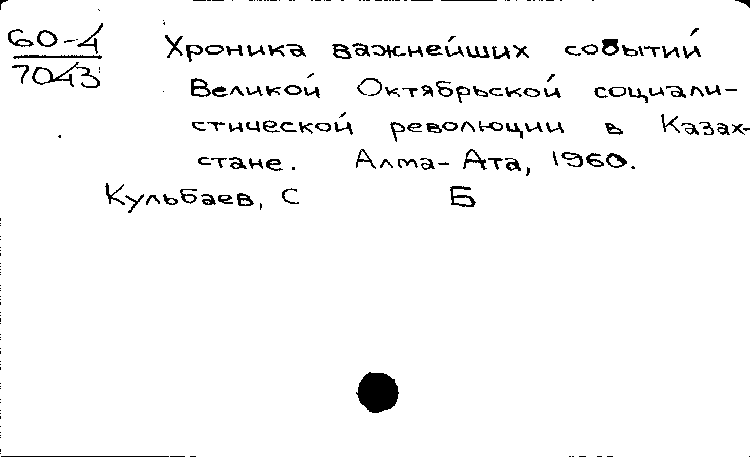 60-4
7043
Хроника важнейших событий
Великой Октябрьской социали-
стической революции в Казах-
стане. Алма-Ата, 1960.
Кульбаев, С Б